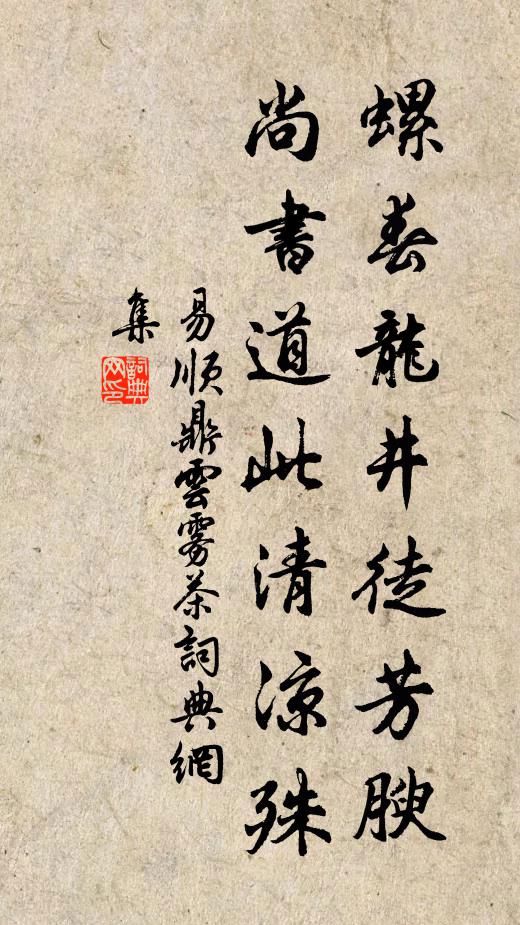 螺春龍井徒芳腴
尚書道此清涼殊
易順鼎雲霧茶詞典網
集
詞典網印